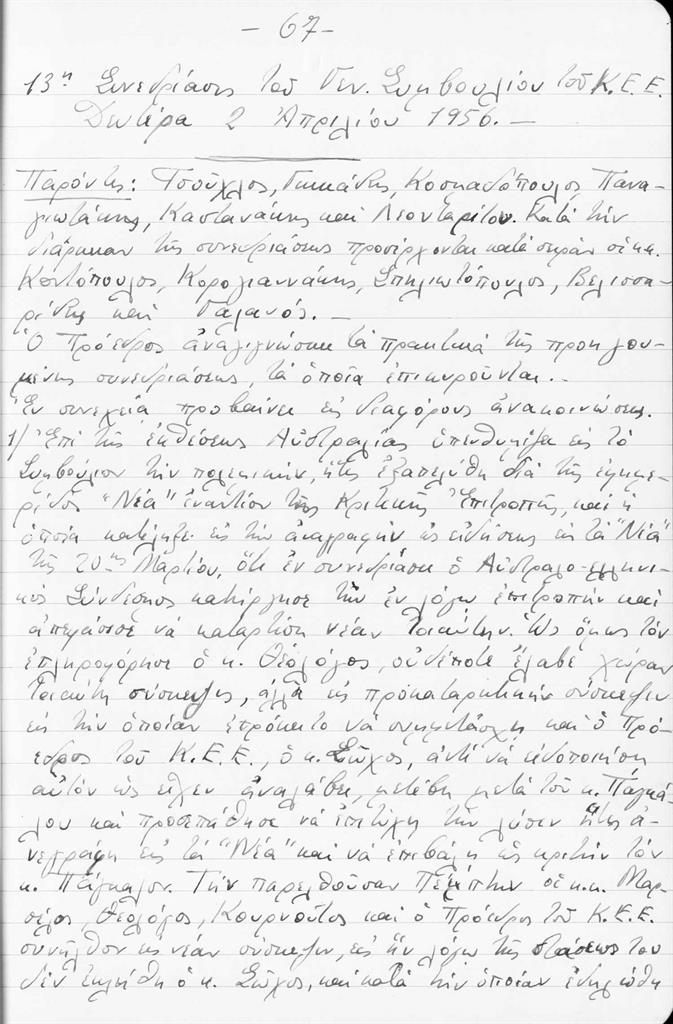 - 67 -
13η Συνεδρίασις τοῦ Γεν. Συμβουλίου τοῦ Κ.Ε.Ε.
Δευτέρα 2 Ἀπριλίου 1956. -
Παρόντες: Τσοῦχλος, Γικκάδης, Κοσμαδόπουλος, Πανα-
γιωτάκης, Καστανάκης καὶ Λεονταρίτου. Κατὰ τὴν
διάρκειαν τῆς συνεδριάσεως προσέρχονται κατὰ σειρὰν οἱ κ.κ.
Κοντόπουλος, Κορογιαννάκης, Σπηλιωτόπουλος, Βελισσα-
ρίδης καὶ Γαλανός. -
Ὁ Πρόεδρος ἀναγιγνώσκει τὰ πρακτικὰ τῆς προηγου-
μένης συνεδριάσεως, τὰ ὁποῖα ἐπικυροῦνται..
Ἐν συνεχείᾳ προβαίνει εἰς διαφόρους ἀνακοινώσεις.
1/ Ἐπὶ τῆς ἐκθέσεως Αὐστραλίας ὑπενθυμίζει εἰς τὸ
Συμβούλιον τὴν πολεμικήν, ἥτις ἐξαπελύθη διὰ τῆς ἐφημε-
ρίδος "Νέα" ἐναντίον τῆς Κριτικῆς Ἐπιτροπῆς, καὶ ἡ
ὁποία κατέληξε εἰς τὴν ἀναγραφὴν ὡς εἰδήσεως εἰς τὰ "Νέα"
τῆς 20ης Μαρτίου, ὅτι ἐν συνεδριάσει ὁ Αὐστραλο-ελληνι-
κὸς Σύνδεσμος κατήργησε τὴν ἐν λόγῳ ἐπιτροπὴν καὶ
ἀπεφάσισε νὰ καταρτίσῃ νέαν τοιαύτην. Ὡς ὅμως τὸν
ἐπληροφόρησε ὁ κ. Θεολόγος, οὐδέποτε ἔλαβε χώραν
τοιαύτη σύσκεψις, ἀλλὰ εἰς προκαταρκτικὴν σύσκεψιν
εἰς τὴν ὁποίαν ἐπρόκειτο νὰ συμμετάσχῃ καὶ ὁ Πρό-
εδρος τοῦ Κ.Ε.Ε., ὁ κ. Σῶχος, ἀντὶ νὰ εἰδοποιήσῃ
αὐτὸν ὡς εἶχεν ἀναλάβει, μετέβη μετὰ τοῦ κ. Πάγκα-
λου καὶ προσεπάθησε νὰ ἐπιτύχῃ τὴν λύσιν ἥτις ἀ-
νεγράφη εἰς τὰ "Νέα" καὶ νὰ ἐπιβάλῃ ὡς κριτὴν τὸν
κ. Πάγκαλον. Τὴν παρελθοῦσαν Πέμπτην οἱ κ.κ. Μαρ-
σέλος, Θεολόγος, Κουρνοῦτος καὶ ὁ Πρόεδρος τοῦ Κ.Ε.Ε.
συνῆλθον εἰς νέαν σύσκεψιν, εἰς ἣν λόγῳ τῆς στάσεώς του
δὲν ἐκλήθη ὁ κ. Σῶχος, καὶ κατὰ τὴν ὁποίαν ἐδηλώθη